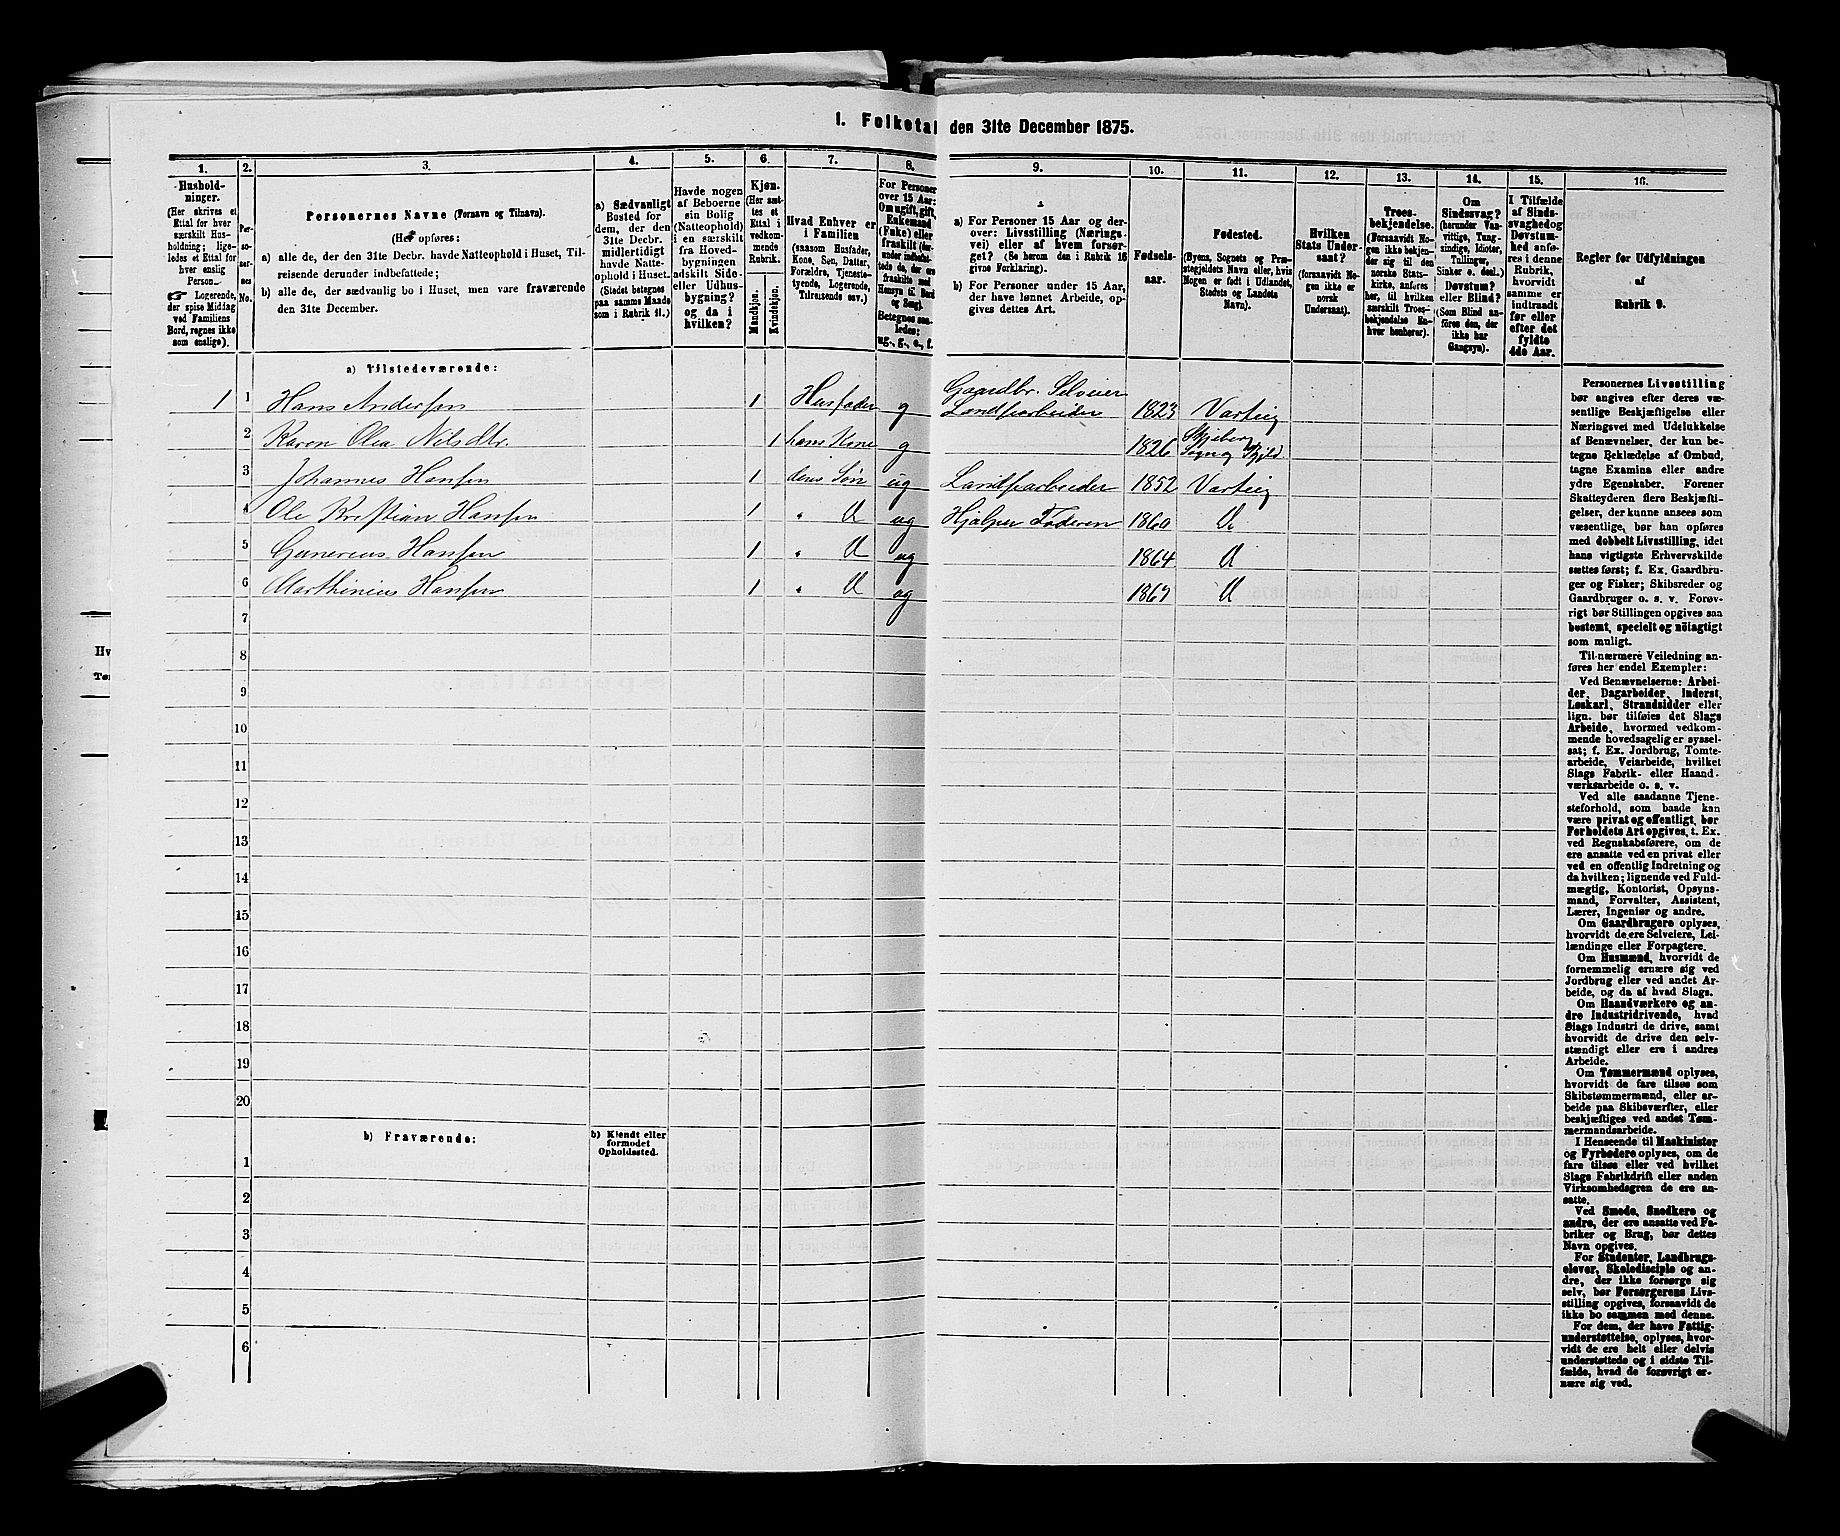 1. Folketal den 31te December 1875.
1.
2.
3.
4.
5.
6.
7.
8.
9.
10.
11.
12.
13.
14.
15.
16.
Hushold-
ninger.
(Her skrives et
Ettal for hver
særskilt Hus-
holdning; lige-
ledes et Ettal for
hver enslig
Person.
☞ Logerende,
der spise Middag
ved Familiens
Bord, regnes ikke
som enslige).
Per-
so-
ner-
nes
No.
Personernes Navne (Fornavn og Tilnavn).
(Her opføres:
a) alle de, der den 31te Decbr. havde Natteophold i Huset, Til-
reisende derunder indbefattede;
b) alle de, der sædvanlig bo i Huset, men vare fraværende
den 31te December.
a) Sædvanligt
Bosted for
dem, der den
31te Decbr.
midlertidigt
havde Natte-
ophold i Huset.
(Stedet betegnes
paa samme Maade
som i Rubrik 11.)
Havde nogen
af Beboerne
sin Bolig
(Natteophold)
i en særskilt
fra Hoved-
bygningen
adskilt Side-
eller Udhus-
bygning?
og da i
hvilken?
Kjøn.
(Her sæt-
tes et
Ettal i
vedkom-
mende
Rubrik.
Mandkjøn.
Kvindekjøn.
Hvad Enhver er
i Familien
(saasom Husfader,
Kone, Søn, Datter,
Forældre, Tjeneste-
tyende, Logerende,
Tilreisende osv.)
For Personer
over 15 Aar:
Om ugift, gift,
Enkemand
(Enke) eller
fraskilt (der-
under indbefat-
tede de, der ere
fraskilte med
Hensyn til Bord
og Seng).
Betegnes saa-
ledes:
ug., g., e., f.
a) For Personer 15 Aar og der-
over: Livsstilling (Nærings-
vei) eller af hvem forsør-
get? (Se herom den i Rubrik 16
givne Forklaring).
b) For Personer under 15 Aar,
der have lønnet Arbeide, op-
gives dettes Art.
Fødsels-
aar.
Fødested.
(Byens, Sognets og Præ-
stegjeldets Navn eller, hvis
Nogen er født i Udlandet,
Stedets og Landets
Navn).
Hvilken
Stats Under-
saat?
(forsaavidt No-
gen ikke er
norsk
Undersaat).
Troes-
bekjendelse.
(Forsaavidt No-
gen ikke bekjen-
der sig til den
norske Stats-
kirke, anføres
her, til hvilken
særskilt Troes-
bekjendelse En-
hver henhører).
Om
Sindssvag?
(herunder Van-
vittige, Tung-
sindige, Idioter,
Tullinger,
Sinker o. desl.)
Døvstum?
eller Blind?
(Som Blind an-
føres den, der
ikke har
Gangsyn).
I Tilfælde
af Sinds-
svaghed og
Døvstum-
hed anfø-
res i denne
Rubrik,
hvorvidt
samme er
indtraadt
før eller
efter det
fyldte
4de Aar.
Regler for Udfyldningen
af
Rubrik 9.
a) Tilstedeværende:
1 1 Hans Andersen 1 Husfader g Gaardbr. Selveier
Landarbeider 1823 Varteig
2 Karen Olea Nilsdtr. 1 hans Kone g 1826 Skjeberg
Sogn og Pgjld.
3 Johannes Hansen 1 deres Søn ug Landarbeider 1852 Varteig
4 Ole Kristian Hansen 1 " Do ug Hjælper Faderen 1860 Do
5 Gunerius Hansen 1 " Do ug 1864 Do
6 Marthinius Hansen 1 " Do ug 1867 Do
7
8
9
10
11
12
13
14
15
16
17
18
19
20
b) Fraværende:
b) Kjendt eller
formodet
Opholdssted.
1
2
3
4
5
6
Personernes Livsstilling
bør angives efter deres væ-
sentlige Beskjæftigelse eller
Næringsvei med Udelukkelse
af Benævnelser, der kun be-
tegne Beklædelse af Ombud,
tagne Examina eller andre
ydre Egenskaber. Forener
Skatteyderen flere Beskjæfti-
gelser, der kunne ansees som
væsentlige, bør han opføres
med dobbelt Livsstilling, idet
hans vigtigste Erhvervskilde
sættes først; f. Ex. Gaardbru-
ger og Fisker; Skibsreder og
Gaardbruger o. s. v. Forøv-
rigt bør Stillingen opgives saa
bestemt, specielt og nøiagtigt
som muligt.
Til nærmere Veiledning an-
føres her endel Exempler:
Ved Benævnelserne: Arbei-
der, Dagarbeider, Inderst,
Løskarl, Strandsidder eller
lign. bør tilføies det Slags
Arbeide, hvormed vedkom-
mende hovedsagelig er syssel-
sat; f. Ex. Jordbrug, Tomte-
arbeide, Veiarbeide, hvilket
Slags Fabrik- eller Haand-
værksarbeide o. s. v.
Ved alle saadanne Tjene-
steforhold, som baade kan
være privat og offentligt, bør
Forholdets Art opgives, t. Ex.
ved Regnskabsførere, om de
ere ansatte ved en privat eller
ved en offentlig Indretning og
da hvilken; lignende ved Fuld-
mægtig, Kontorist, Opsyns-
mand, Forvalter, Assistent,
Lærer, Ingeniør og andre.
Om Gaardbrugere oplyses,
hvorvidt de ere Selveiere, Lei-
lændinge eller Forpagtere.
Om Husmænd, hvorvidt de
fornemmelig ernære sig ved
Jordbrug eller ved andet Ar-
beide, og da af hvad Slags.
Om Haandværkere og an-
dre Industridrivende, hvad
Slags Industri de drive, samt
hvorvidt de drive den selv-
stændigt eller ere i andres
Arbeide.
Om Tømmermænd oplyses,
hvorvidt de fare tilsøs som
Skibstømmermænd, eller ar-
beide paa Skibsværfter, eller
beskjæftiges ved andet Tøm-
mermandsarbeide.
I Henseende til Maskinister
og Fyrbødere oplyses, om de
fare tilsøs eller ved hvilket
Slags Fabrikdrift eller anden
Virksomhedsgren de ere an-
satte.
Ved Smede, Snedkere og
andre, der ere ansatte ved Fa-
briker og Brug, bør dettes
Navn opgives.
For Studenter, Landbrugs-
elever, Skoledisciple og an-
dre, der ikke forsørge sig
selv, bør Forsørgerens Livs-
stilling opgives, forsaavidt de
ikke bo sammen med denne.
For dem, der have Fattig-
understøttelse, oplyses, hvor-
vidt de ere helt eller delvis
understøttede og i sidste Til-
fælde, hvad de forøvrigt er-
nære sig ved.